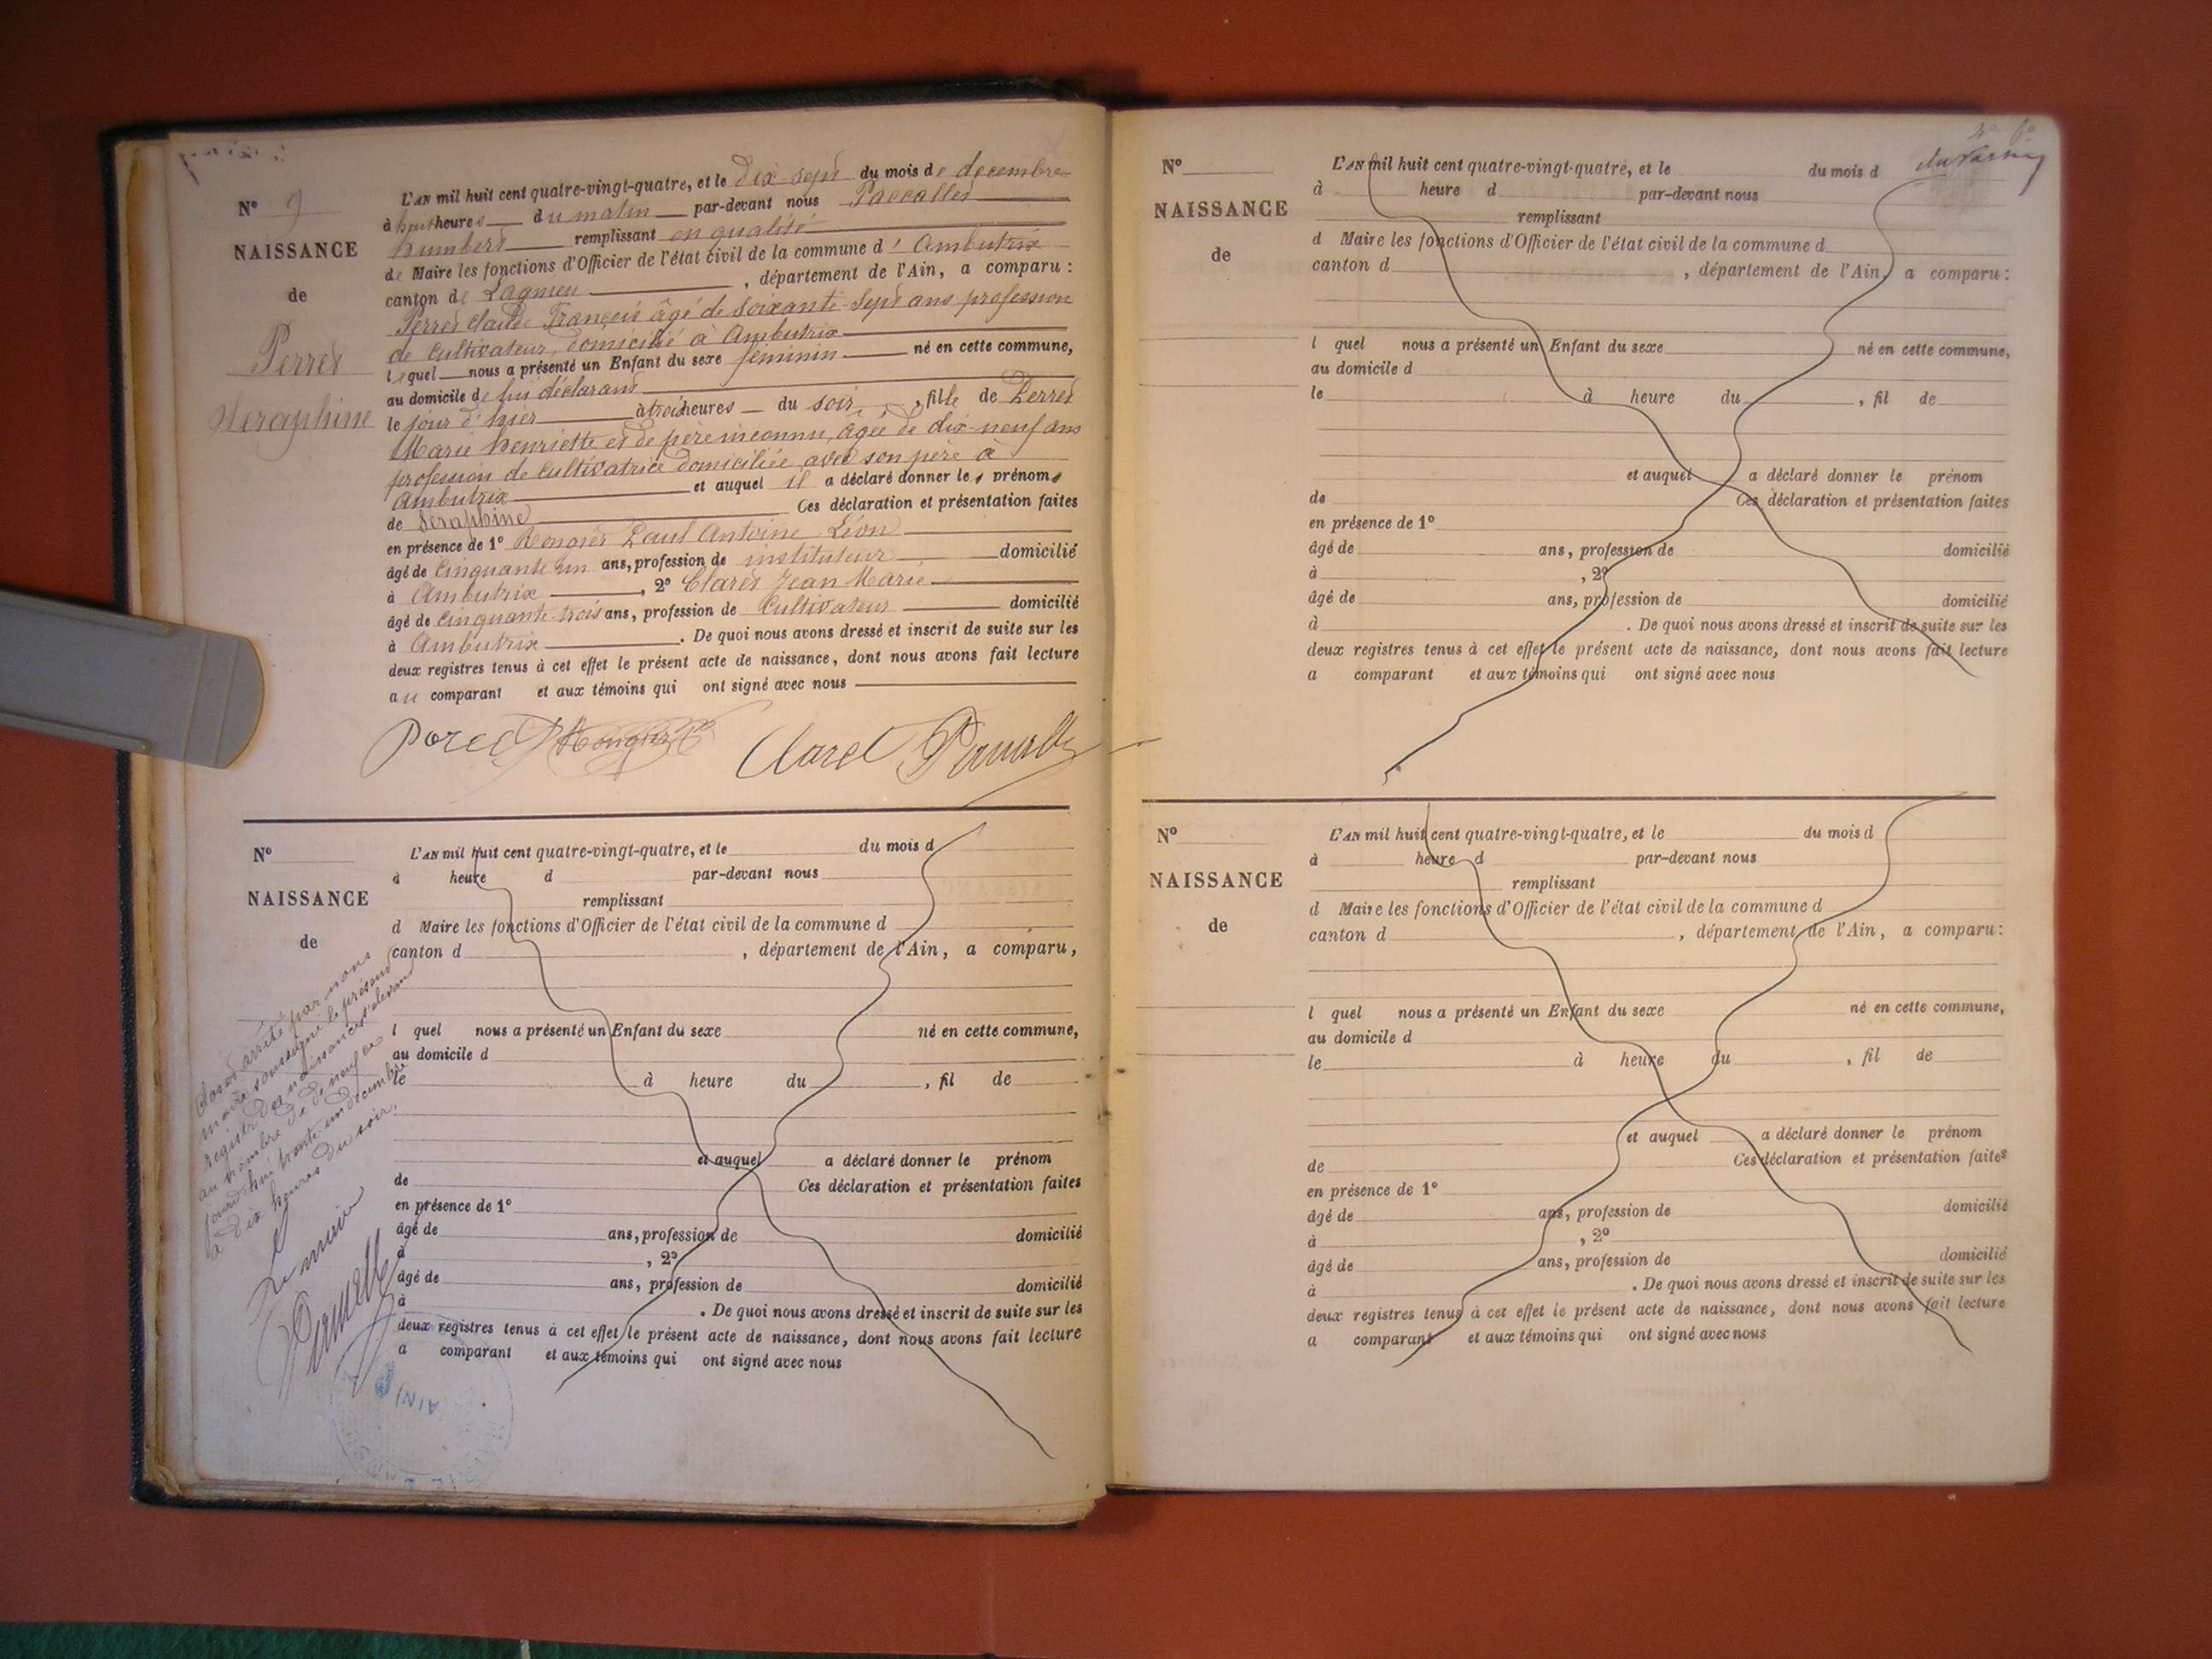 N° 9
NAISSANCE
de
Perret
Séraphine
L'AN mil huit cent quatre-vingt-quatre, et le dix-sept du mois de décembre
à huit heures du matin par-devant nous Paccallet
humbert remplissant en qualité
de Maire les fonctions d'Officier de l'état civil de la commune d'Ambutrix
canton de Lagnieu, département de l'Ain, a comparu :
Perret Claude François âgé de soixante-sept ans profession
de cultivateur, domicilié à Ambutrix
lequel nous a présenté un Enfant du sexe féminin né en cette commune,
au domicile de lui déclarant
le jour d'hier à trois heures du soir, fille de Perret
Marie henriette et de père inconnu, agée de dix-neuf ans
profession de cultivatrice domiciliée avec son père à
Ambutrix et auquel il a déclaré donner les prénoms
de Séraphine Ces déclaration et présentation faites
en présence de 1° Paul Antoine Léon
âgé de cinquante un ans, profession de instituteur domicilié
à Ambutrix, 2° Claret Jean Marie
âgé de cinquante-trois ans, profession de cultivateur domicilié
à Ambutrix. De quoi nous avons dressé et inscrit de suite sur les
deux registres tenus à cet effet le présent acte de naissance, dont nous avons fait lecture
au comparant et aux témoins qui ont signé avec nous
Claret
N°
NAISSANCE
de
L'AN mil huit cent quatre-vingt-quatre, et le du mois d
à heure d par-devant nous
remplissant
d Maire les fonctions d'Officier de l'état civil de la commune d
canton d , département de l'Ain, a comparu,
l quel nous a présenté un Enfant du sexe né en cette commune,
au domicile d
le à heure du , fil de
et auquel a déclaré donner le prénom
de Ces déclaration et présentation faites
en présence de 1°
âgé de ans, profession de domicilié
à , 2°
âgé de ans, profession de domicilié
à . De quoi nous avons dressé et inscrit de suite sur les
deux registres tenus à cet effet le présent acte de naissance, dont nous avons fait lecture
a comparant et aux témoins qui ont signé avec nous
Clos et arrêté par nous
maire soussigné le présent
registre des naissances s'elevant
au nombre de neuf ce
jourd'hui trente un décembre
à dix heures du soir.
Le maire
AIN
N°
NAISSANCE
de
L'AN mil huit cent quatre-vingt-quatre, et le du mois d
à heure d par-devant nous
remplissant
d Maire les fonctions d'Officier de l'état civil de la commune d
canton d , département de l'Ain, a comparu :
l quel nous a présenté un Enfant du sexe né en cette commune,
au domicile d
le à heure du , fil de
et auquel a déclaré donner le prénom
de Ces déclaration et présentation faites
en présence de 1°
âgé de ans, profession de domicilié
à , 2°
âgé de ans, profession de domicilié
à . De quoi nous avons dressé et inscrit de suite sur les
deux registres tenus à cet effet le présent acte de naissance, dont nous avons fait lecture
a comparant et aux témoins qui ont signé avec nous
N°
NAISSANCE
de
L'AN mil huit cent quatre-vingt-quatre, et le du mois d
à heure d par-devant nous
remplissant
d Maire les fonctions d'Officier de l'état civil de la commune d
canton d , département de l'Ain, a comparu :
l quel nous a présenté un Enfant du sexe né en cette commune,
au domicile d
le à heure du , fil de
et auquel a déclaré donner le prénom
de Ces déclaration et présentation faites
en présence de 1°
âgé de ans, profession de domicilié
à , 2°
âgé de ans, profession de domicilié
à . De quoi nous avons dressé et inscrit de suite sur les
deux registres tenus à cet effet le présent acte de naissance, dont nous avons fait lecture
a comparant et aux témoins qui ont signé avec nous